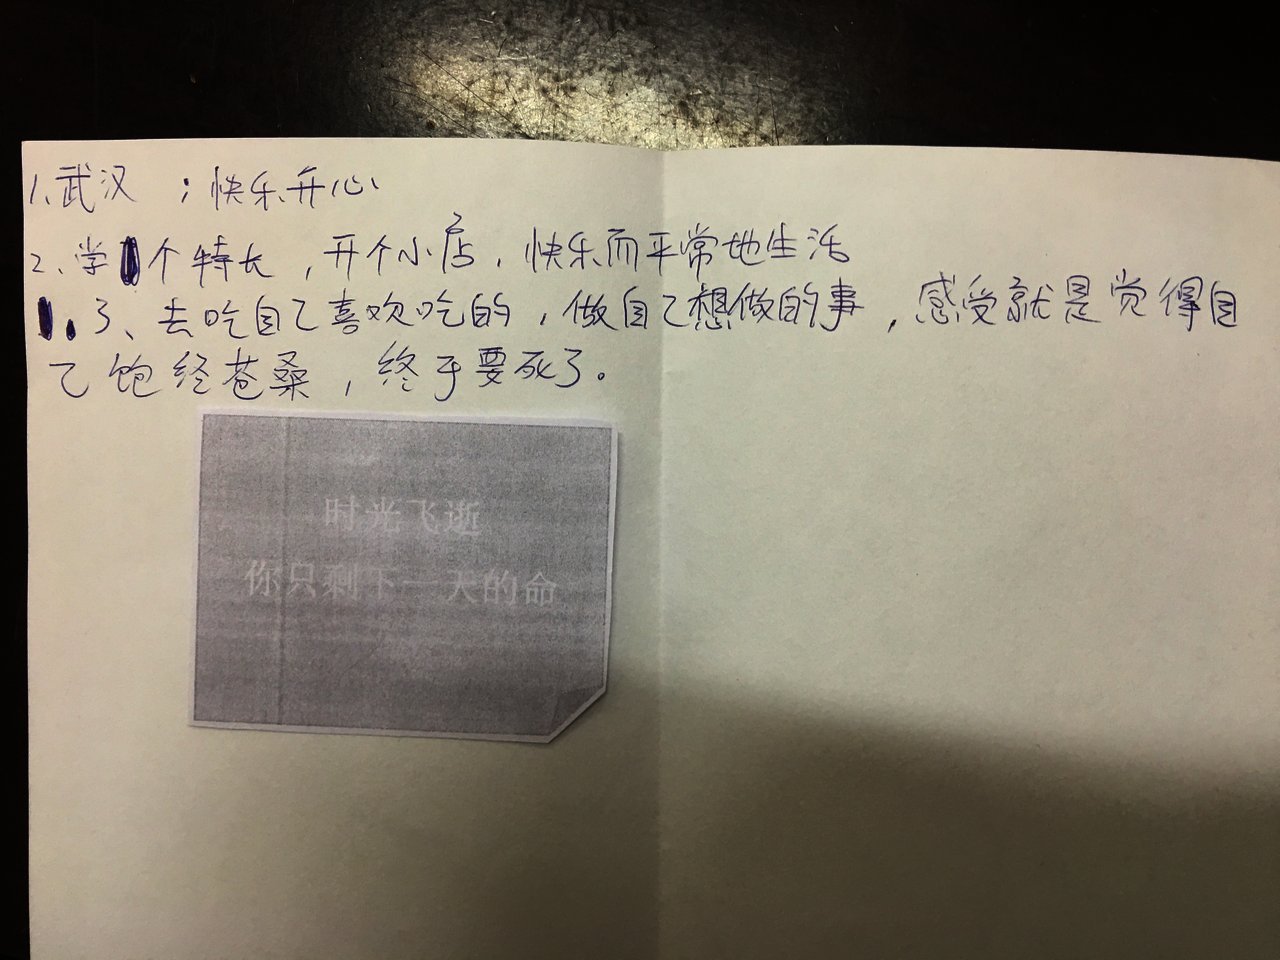 1、武汉 ；快乐、开心
2、学个特长，开个小店，快乐而平常地生活
3、去吃自己喜欢吃的，做自己想做的事，感受就是觉得自
己饱经苍桑，终于要死了。
时光飞逝
你只剩下一天的命